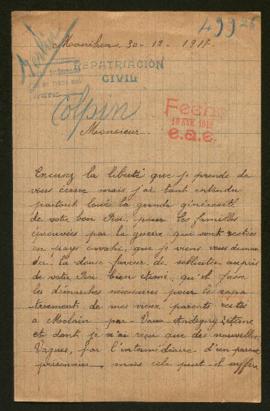 49926
Monihen, 30-12-1917
REPATRIACION
CIVIL
Colpin
Fecha
E.a.e.
Monsieur
Excusez la liberté que je prends de
vous ecrire mais j'ai tant entendu
partout loué la grande générosité
de votre bon Roi, pour les familles
éprouvées par la guerre que sont restées
en pays envahi, que je viens vous deman
der la douce faveur de solliciter auprès
de votre Roi bien aimé, qu'il fasse
les démarches nécessaires pour le rapa
triement de mes vieux parents restés
à Moclain par Vaux Andegny (Aisne)
et dont je n'ai reçu que des nouvelles
Vagues, par l'intermédiaire d'un parent
prisonnier mais cela peut-il suffire